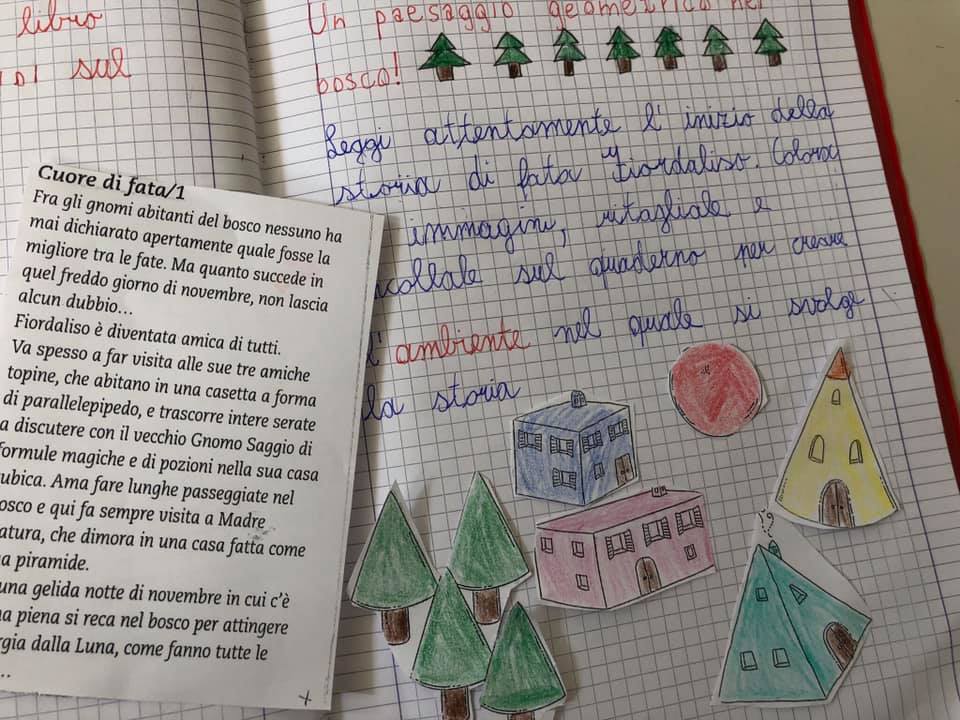 libro
sul
Un paesaggio geometrico nel
bosco!
Leggi attentamente l'inizio della
storia di fata Fiordaliso. Colora
immagini, ritagliale e
collale sul quaderno per creare
l'ambiente nel quale si svolge
la storia
Cuore di fata/1
Fra gli gnomi abitanti del bosco nessuno ha
mai dichiarato apertamente quale fosse la
migliore tra le fate. Ma quanto succede in
quel freddo giorno di novembre, non lascia
alcun dubbio...
Fiordaliso è diventata amica di tutti.
Va spesso a far visita alle sue tre amiche
topine, che abitano in una casetta a forma
di parallelepipedo, e trascorre intere serate
a discutere con il vecchio Gnomo Saggio di
formule magiche e di pozioni nella sua casa
ubica. Ama fare lunghe passeggiate nel
osco e qui fa sempre visita a Madre
atura, che dimora in una casa fatta come
a piramide.
una gelida notte di novembre in cui c'è
na piena si reca nel bosco per attingere
rgia dalla Luna, come fanno tutte le
..